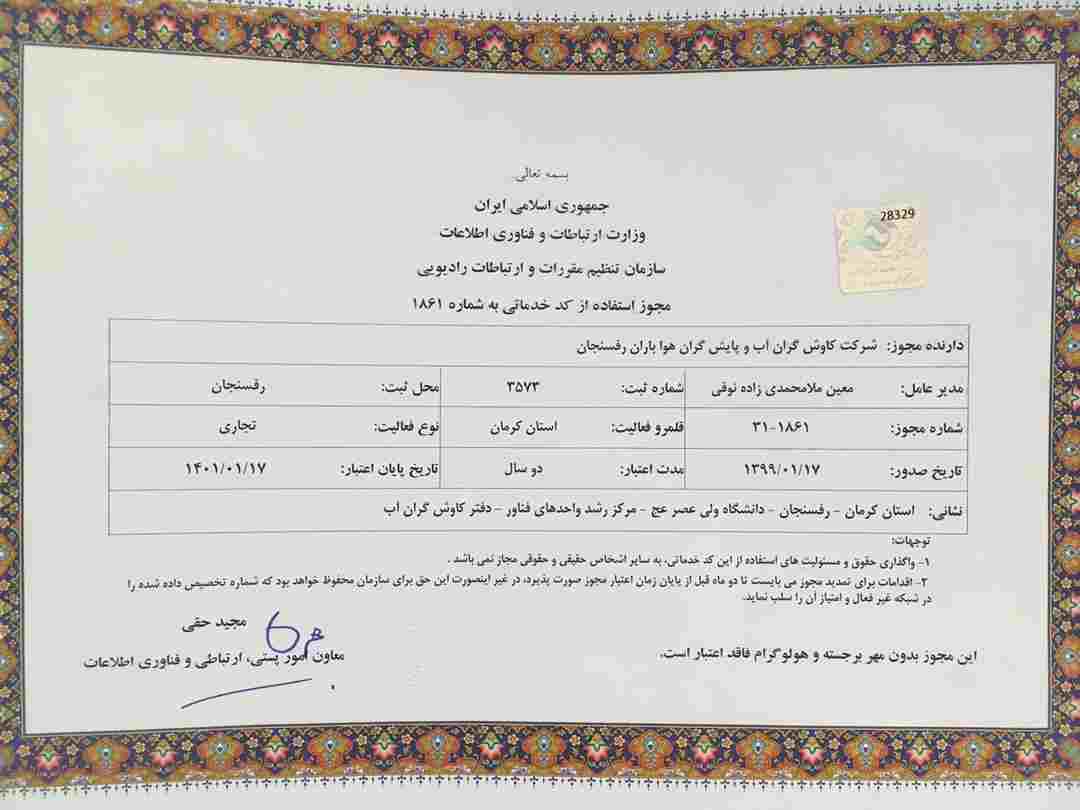 بسمه تعالی
جمهوری اسلامی ایران
وزارت ارتباطات و فناوری اطلاعات
سازمان تنظیم مقررات و ارتباطات رادیویی
مجوز استفاده از کد خدماتی به شماره ۱۸۶۱
28329
دارنده مجوز: شرکت کاوش گران آب و پایش گران هوا باران رفسنجان
مدیر عامل: معین ملامحمدی زاده نوقی شماره ثبت: ۳۵۷۳ محل ثبت: رفسنجان
شماره مجوز: ۳۱-۱۸۶۱ قلمرو فعالیت: استان کرمان نوع فعالیت: تجاری
تاریخ صدور: ۱۳۹۹/۰۱/۱۷ مدت اعتبار: دو سال تاریخ پایان اعتبار: ۱۴۰۱/۰۱/۱۷
نشانی: استان کرمان - رفسنجان - دانشگاه ولی عصر عج - مرکز رشد واحدهای فناور - دفتر کاوش گران آب
توجهات:
۱- واگذاری حقوق و مسئولیت های استفاده از این کد خدماتی، به سایر اشخاص حقیقی و حقوقی مجاز نمی باشد .
۲- اقدامات برای تمدید مجوز می بایست تا دو ماه قبل از پایان زمان اعتبار مجوز صورت پذیرد، در غیر اینصورت این حق برای سازمان محفوظ خواهد بود که شماره تخصیص داده شده را
در شبکه غیر فعال و امتیاز آن را سلب نماید.
این مجوز بدون مهر برجسته و هولوگرام فاقد اعتبار است.
مجید حقی
معاون امور پستی، ارتباطی و فناوری اطلاعات